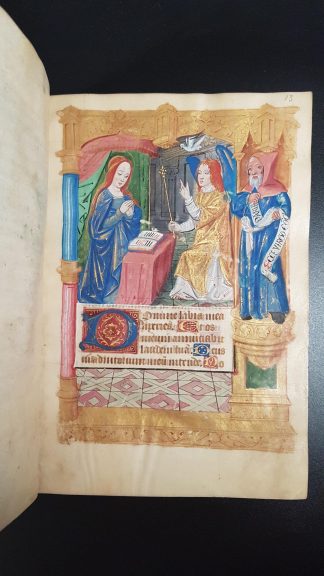 13
Domine labia mea
aperies. Et os
meum annunciabit
laudem tuam. Deus
in adiutorium meum intende. Do